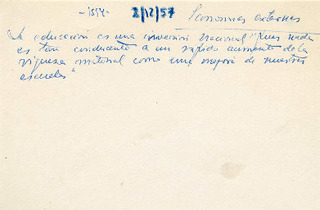 2/12/57 Economías externas
La educación es una inversión nacional "pues nada
es tan conducente a un rápido aumento de la
riqueza material como una mejora de nuestras
escuelas"